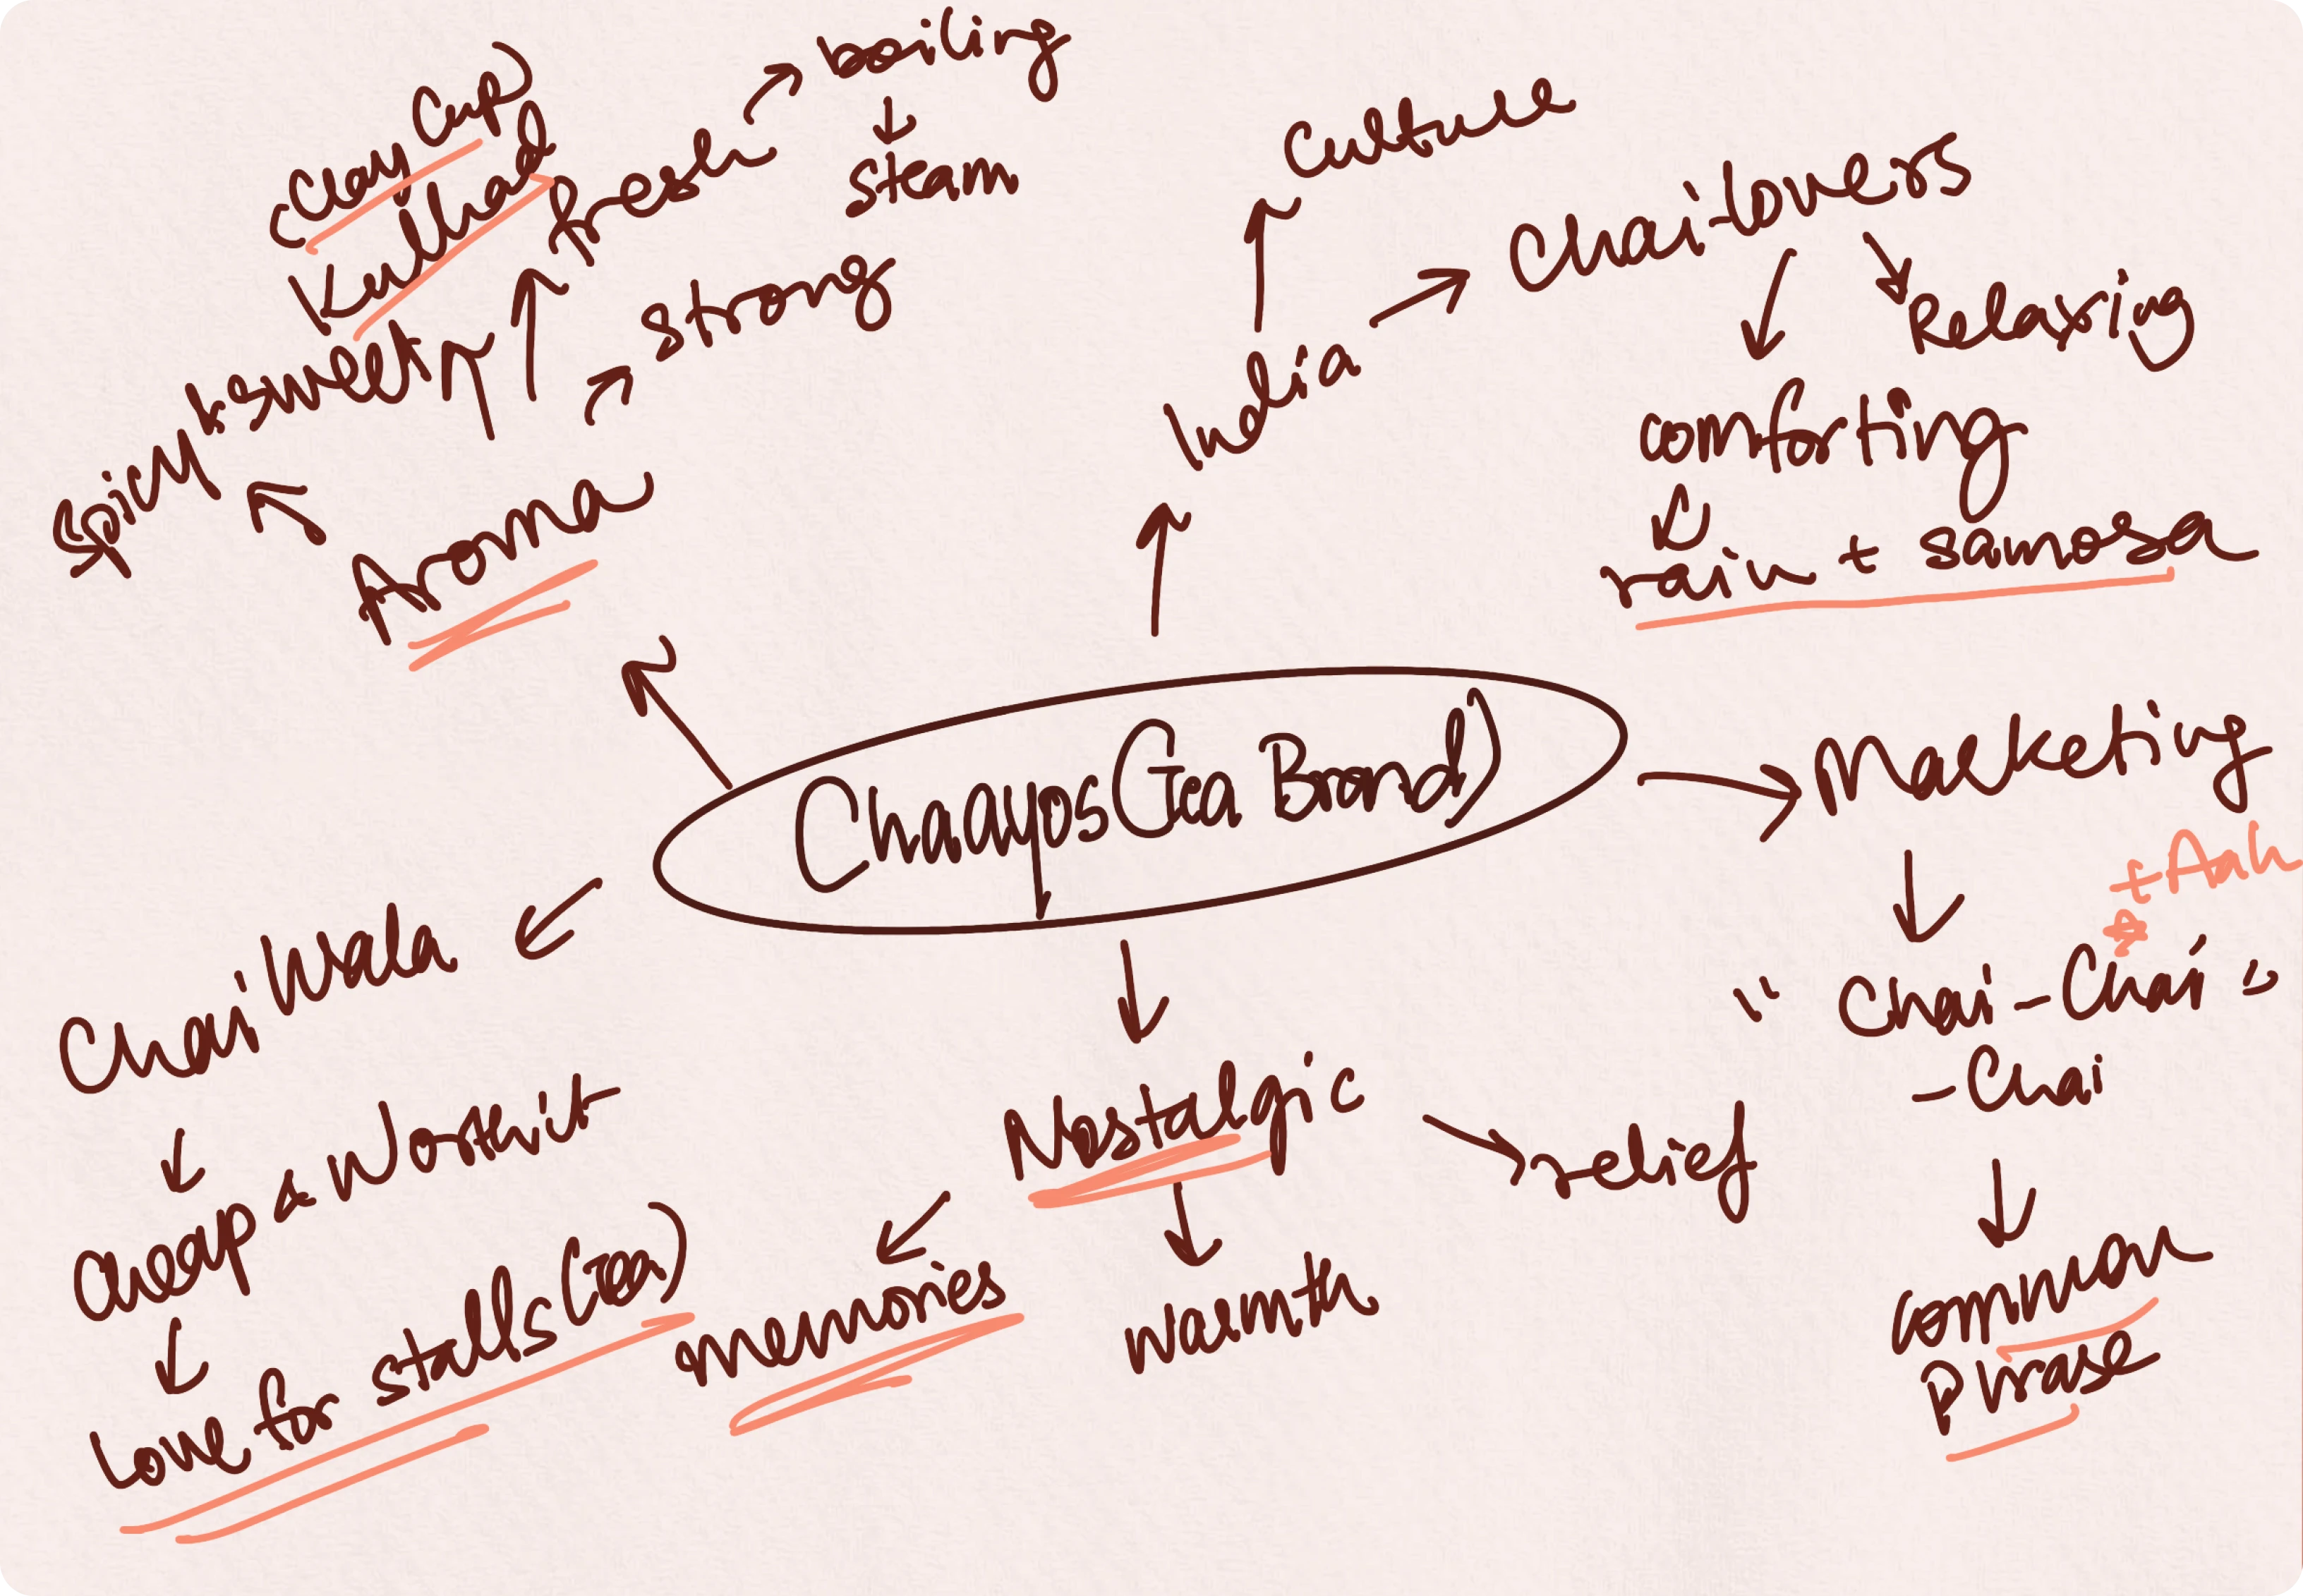 (Clay Cup)
Kulhad
fresh
boiling
steam
strong
Spicy & sweet
Aroma
Culture
India
Chai-lovers
Relaxing
comforting
rain + samosa
Chaayos (Tea Brand)
Marketing
+ Aah
"Chai-Chai"
-Chai
common
Phrase
Chai Wala
Cheap & Worth it
Love for stalls (Tea)
Nostalgic
relief
memories
warmth